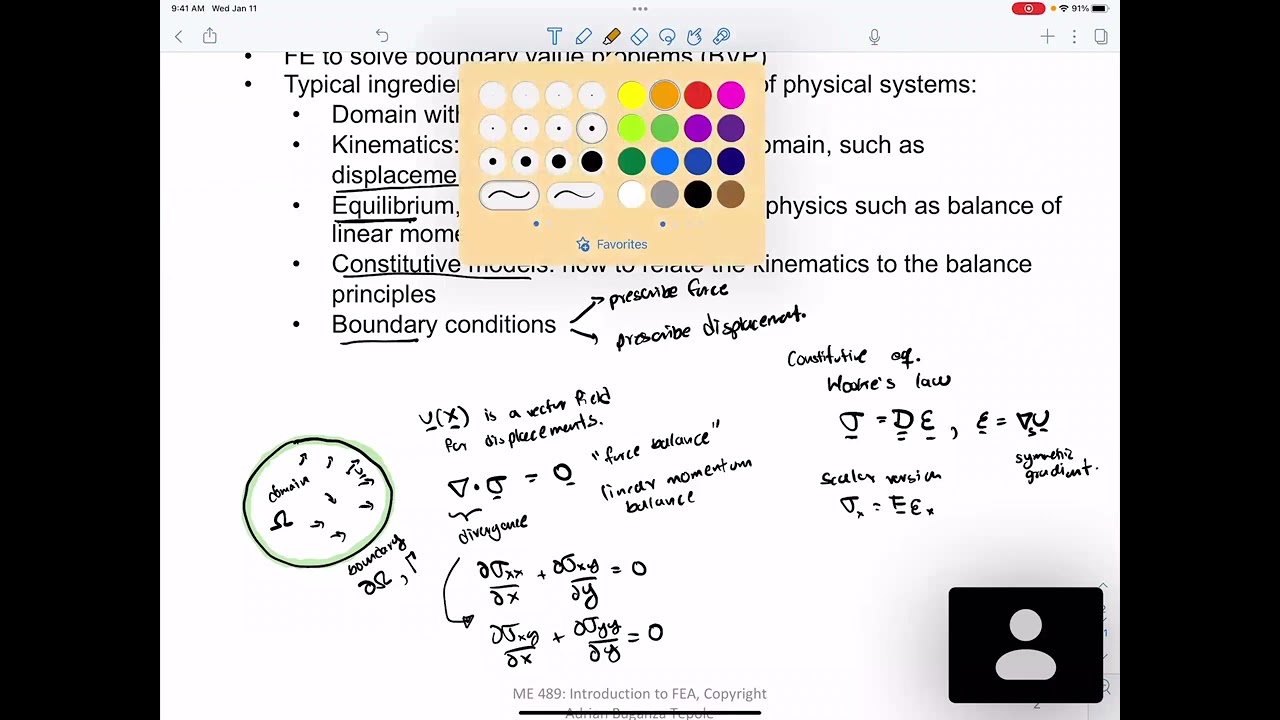 9:41 AM Wed Jan 11
91%
• FE to solve boundary value problems (BVP)
• Typical ingredien
f physical systems:
• Domain with
• Kinematics:
omain, such as
displaceme
• Equilibrium,
physics such as balance of
linear mome
Favorites
• Constitutive models: how to relate the kinematics to the balance
principles
• Boundary conditions
prescribe force
prescribe displacement.
Constitutive eq.
Hooke's law
σ = D ε , ε = ∇ₛu
symmetric
gradient.
scalar version
σₓ = E εₓ
u(x) is a vector field
for displacements.
∇ · σ = 0
"force balance"
linear momentum
balance
divergence
domain
Ω
boundary
∂Ω, Γ
∂σxx/∂x + ∂σxy/∂y = 0
∂σxy/∂x + ∂σyy/∂y = 0
ME 489: Introduction to FEA, Copyright
Adrian Buganza Tepole
2
1
2